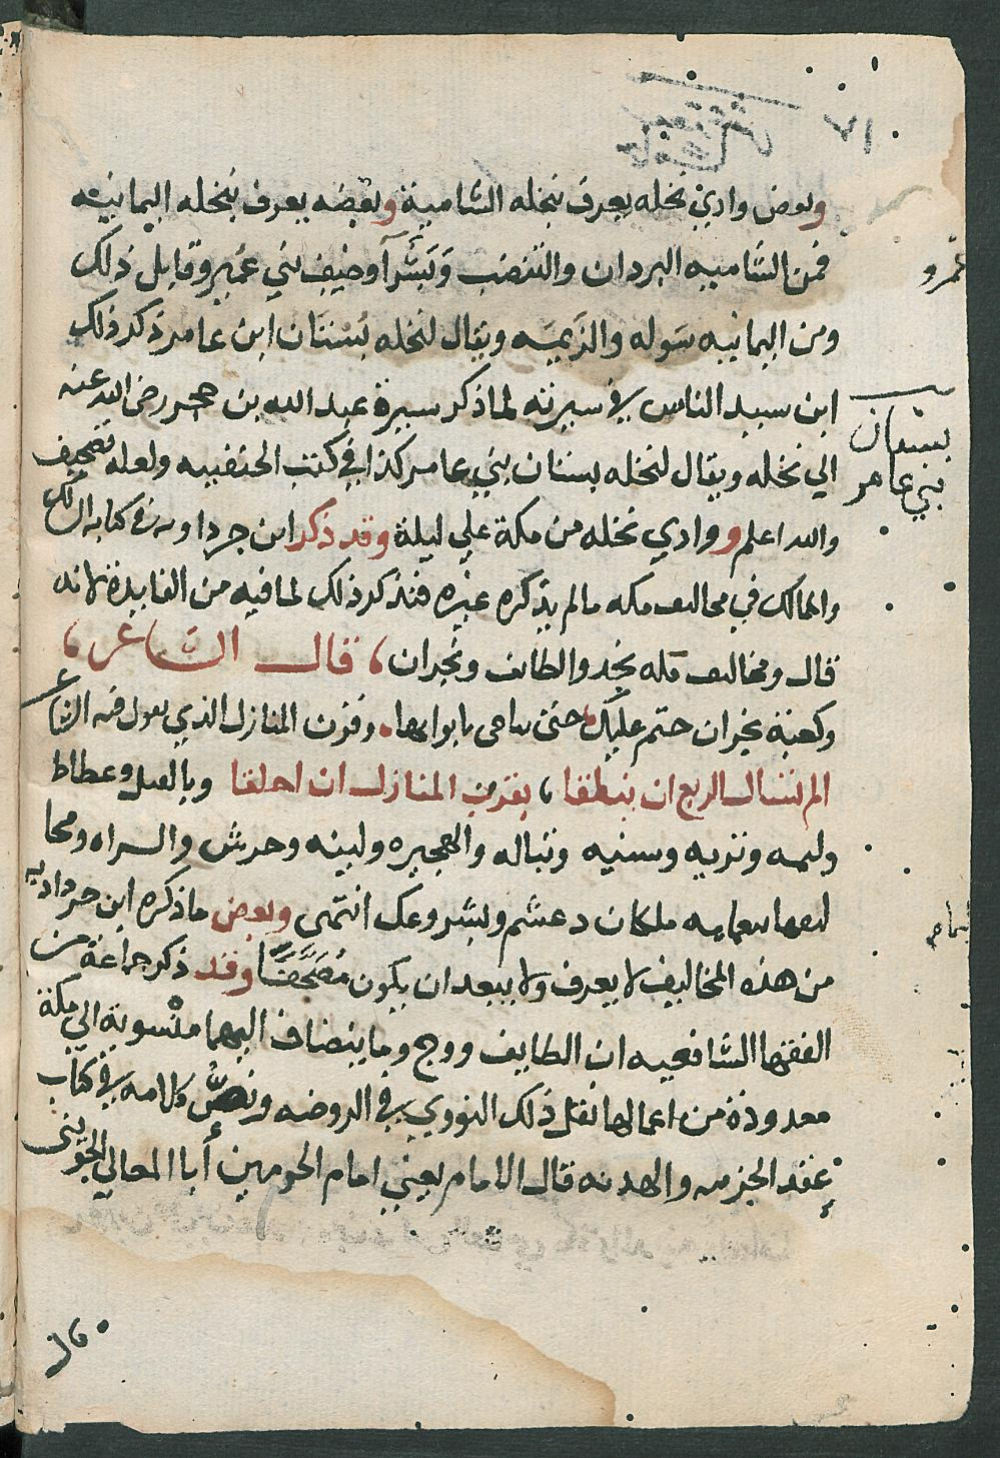 وبعض وادي نخله يعرف بنخله الشامية وبعضه يعرف بنخله اليمانيه
فمن الشاميه البردان والتنضب وبشرا وخيف بني عمير وقابل ذلك
عمرو
ومن اليمانيه سوله والزيميه ويقال لنخله بستان ابن عامر ذكر ذلك
ابن سيد الناس في سيرته لما ذكر سيرة عبد الله بن جحر رضى الله عنه
بستان
بني عامر
الي نخله ويقال لنخله بستان بني عامر كذا في كتب الحنفيه ولعله تصحيف
والله اعلم ووادي نخله من مكة علي ليلة وقد ذكر ابن جرداوبه في كتابه المسالك
والمالك في مخاليف مكه مالم يذكره غيره فنذكر ذلك لما فيه من الفايدة لانه
قال ومخاليف مكه نجد والطائف ونجران قال الشاعر
وكعبة نجران حتم عليك حتى تناخى بابوابها وقرن المنازل الذي يقول فيه الشاعر
الم تسال الربع ان ينطقا بقرن المنازل ان اخلقا وبالعبل وعطاط
وليمه وتربه وبيشه وتباله والهجيره وليبنه وحرش والسراه ومخا
ليفها بتهايه ملكان دعشم وبشر وعك انتهى وبعض ماذكره ابن جرداوبه
من هذه المخاليف لا يعرف ولا يبعد ان يكون مصحفا وقد ذكر جماعة من
الفقها الشافعيه ان الطايف ووج وما ينضاف اليهما منسوبة الي مكة
معدودة من اعمالها نقل ذلك النووي في الروضه ونص كلامه في كتاب
عقد الجزيه والهدنه قال الامام يعني امام الحرمين أبا المعالي الجويني
قال
١٧